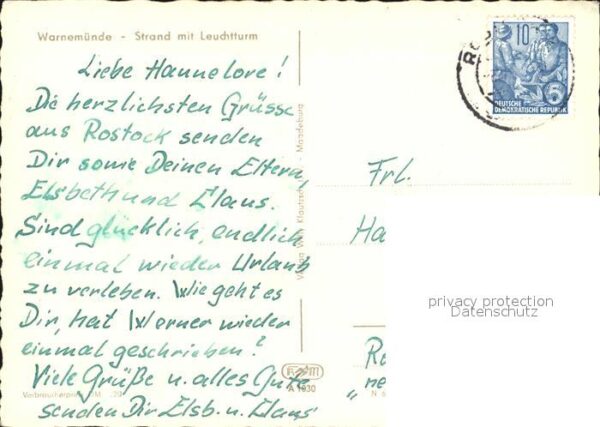 Warnemünde - Strand mit Leuchtturm
Liebe Hannelore!
Die herzlichsten Grüsse
aus Rostock senden
Dir sowie Deinen Eltern,
Elsbeth und Claus.
Sind glücklich, endlich
einmal wieder Urlaub
zu verleben. Wie geht es
Dir, hat Werner wieder
einmal geschrieben?
Viele Grüße u. alles Gute
senden Dir Elsb. u. Claus
Verbraucherpreis DM
A 1030
Magdeburg
10
5
DEUTSCHE
DEMOKRATISCHE REPUBLIK
Frl.
Ha
privacy protection
Datenschutz